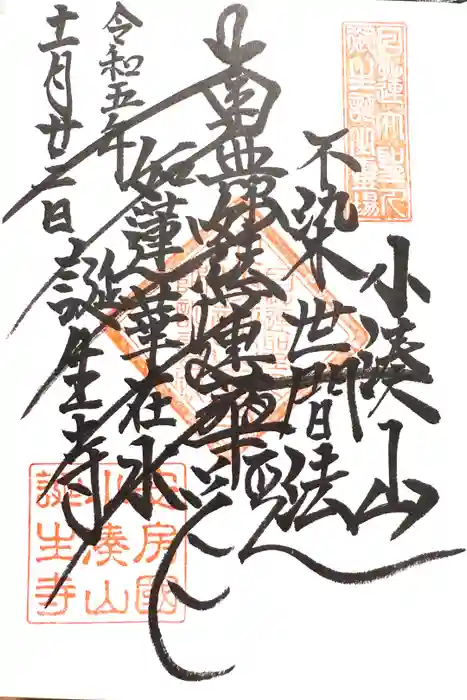 小湊山
不染世間法
南無妙法蓮華経
如蓮華在水
令和五年
十一月廿二日
誕生寺
安房國
小湊山
誕生寺